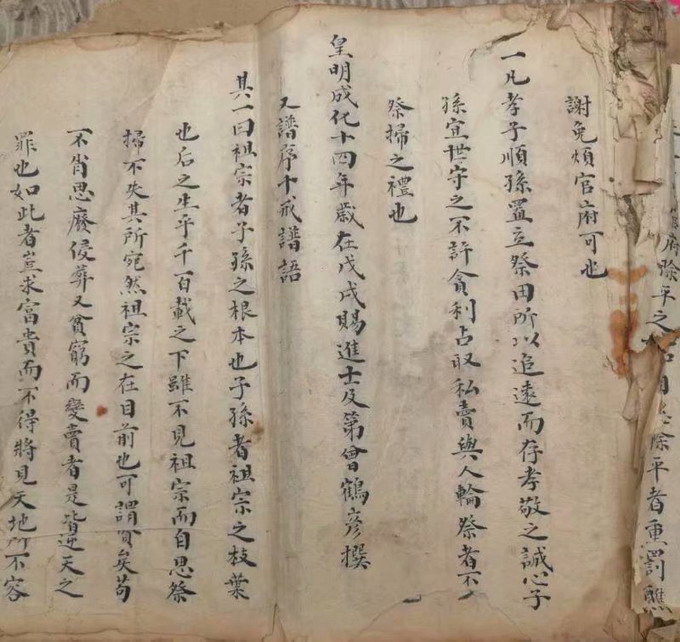 除平之 除平者重罰醮
謝免煩官府可也
一凡孝子順孫置立祭田所以追遠而存孝敬之誠心子
孫宜世守之不許貪利占取私賣與人輪祭者不
祭掃之禮也
皇明成化十四年歲在戊戌賜進士及第曾鶴彥撰
又譜序十戒譜語
其一曰祖宗者子孫之根本也子孫者祖宗之枝葉
也后之生乎千百載之下雖不見祖宗而自思祭
掃不失其所宛然祖宗之在目前也可謂賢矣苟
不肖思廢侵葬又貧窮而變賣者是皆逆天之
罪也如此者豈求富貴而不得將見天地所不容